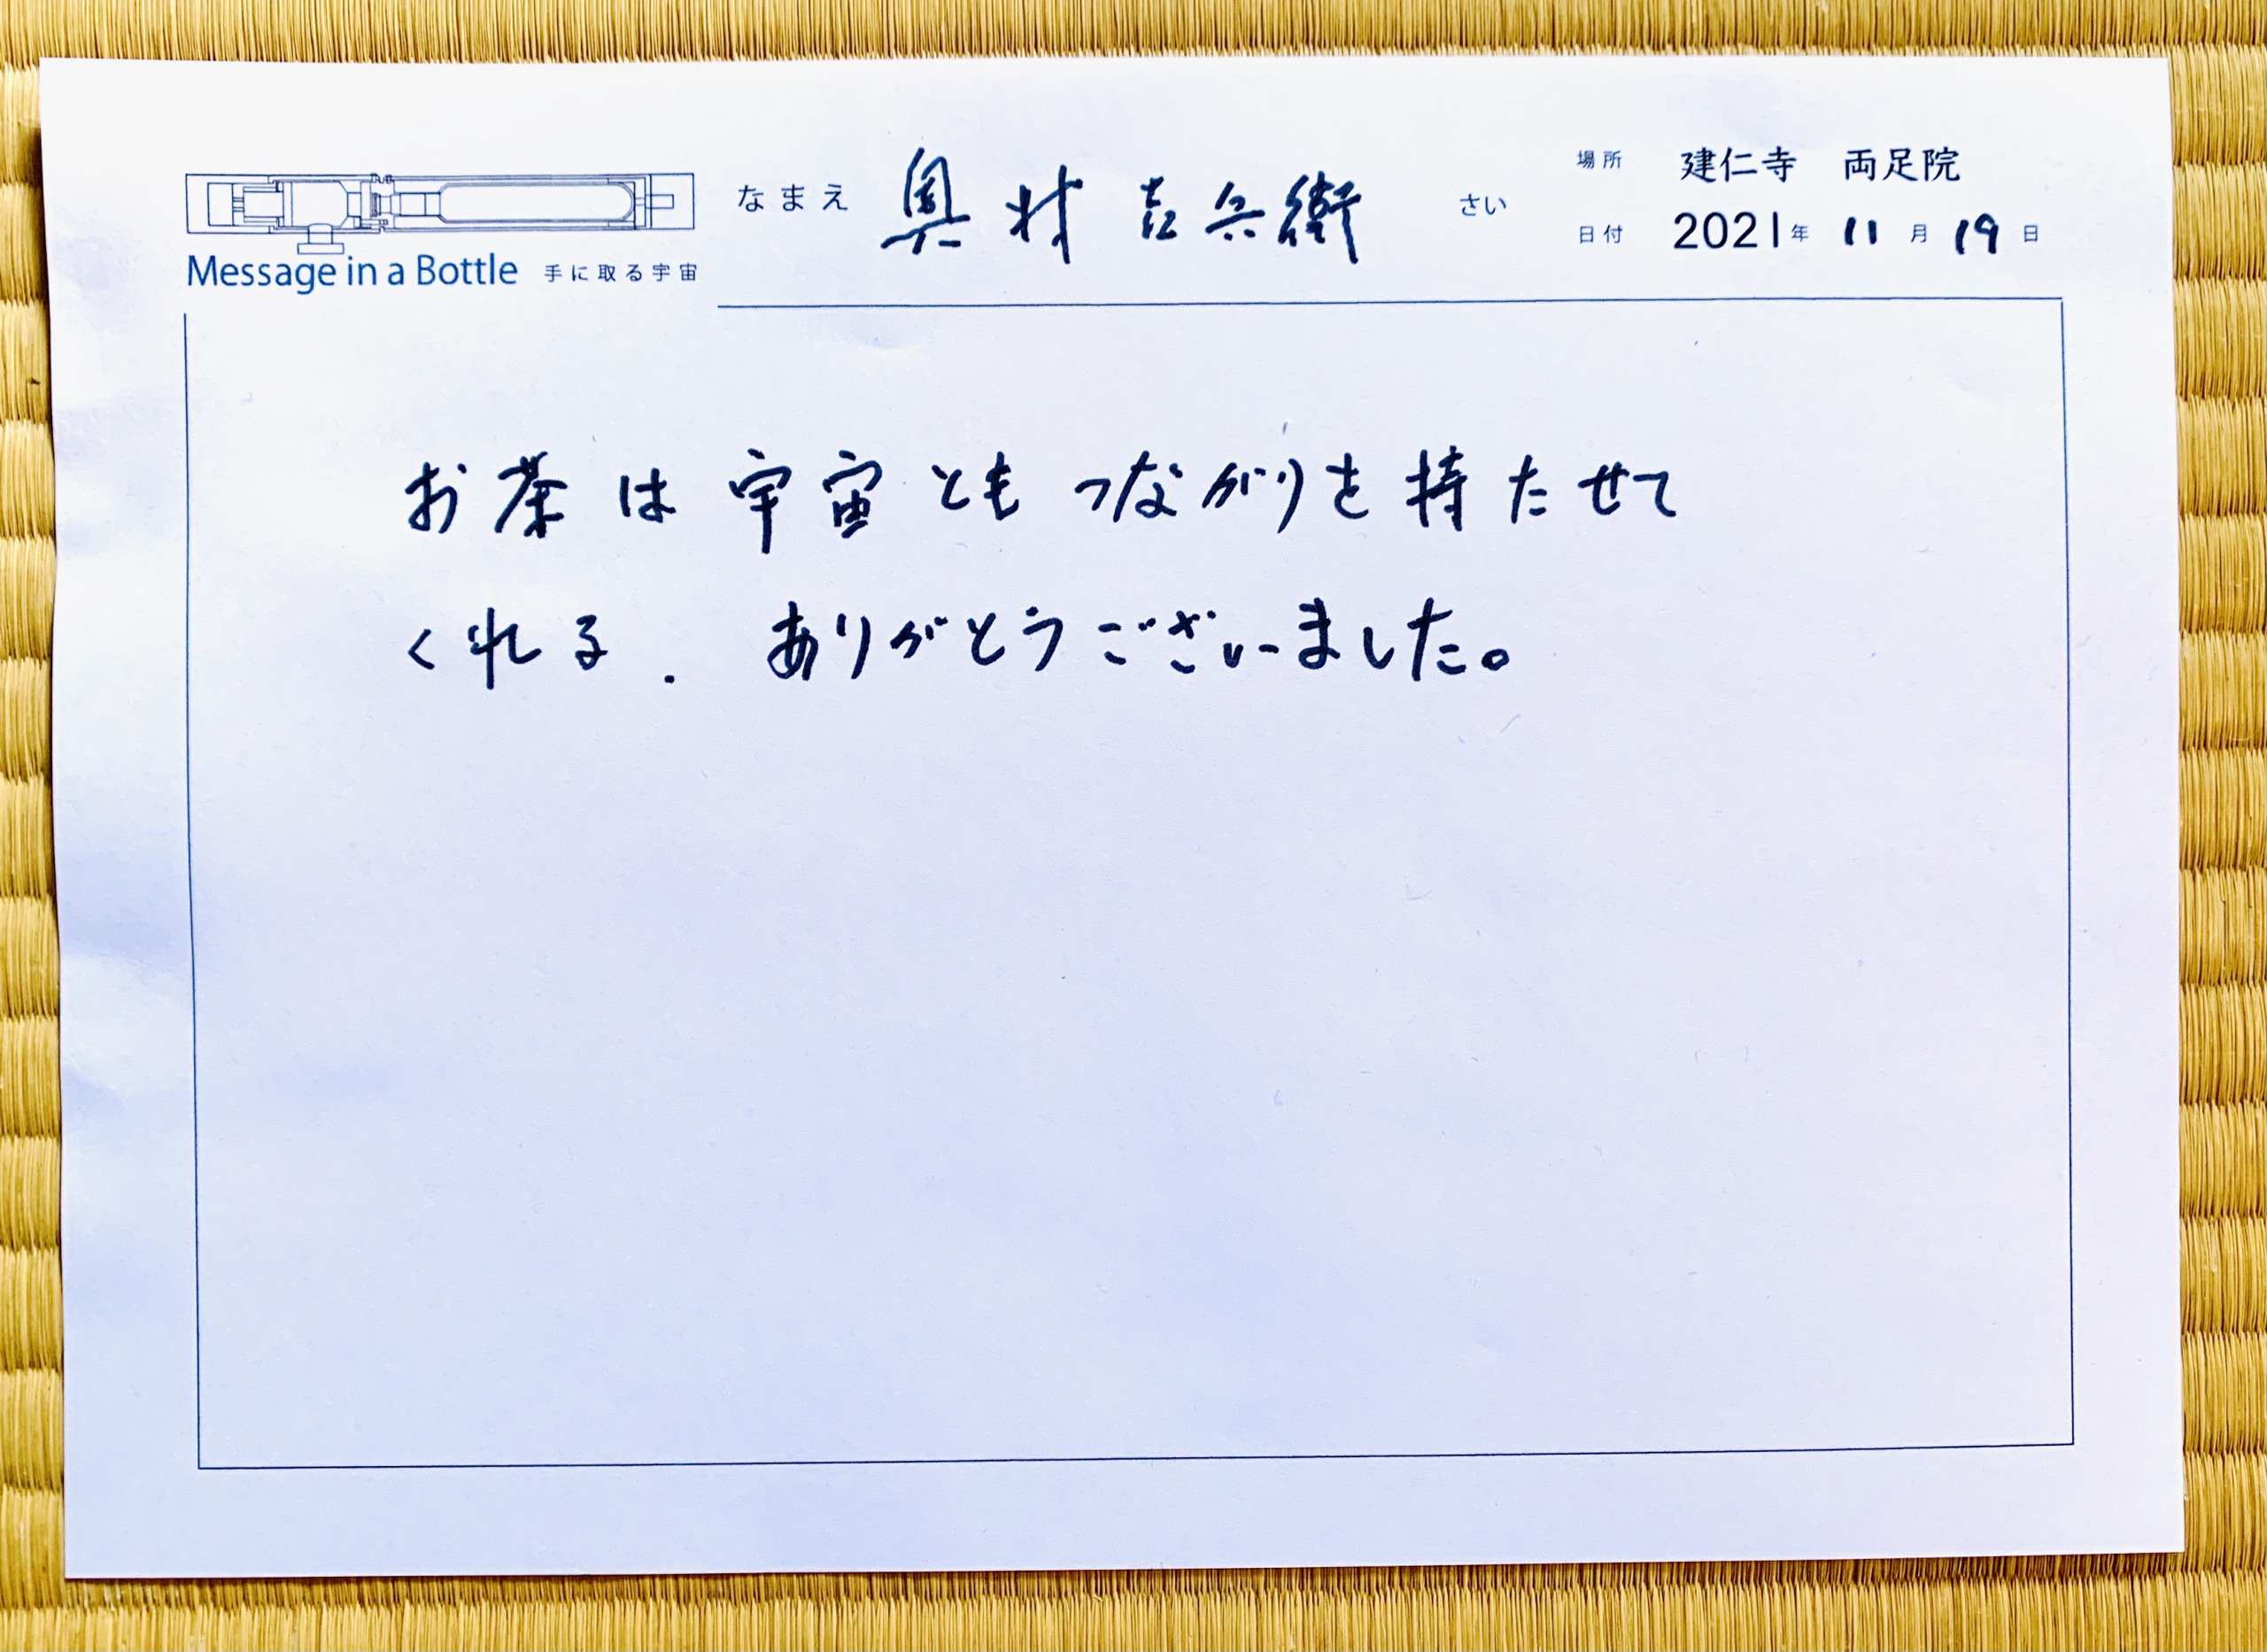 なまえ 奥村吉兵衛 さい
場所 建仁寺 両足院
日付 2021年 11月 19日
Message in a Bottle 手に取る宇宙
お茶は宇宙ともつながりを持たせて
くれる. ありがとうございました。